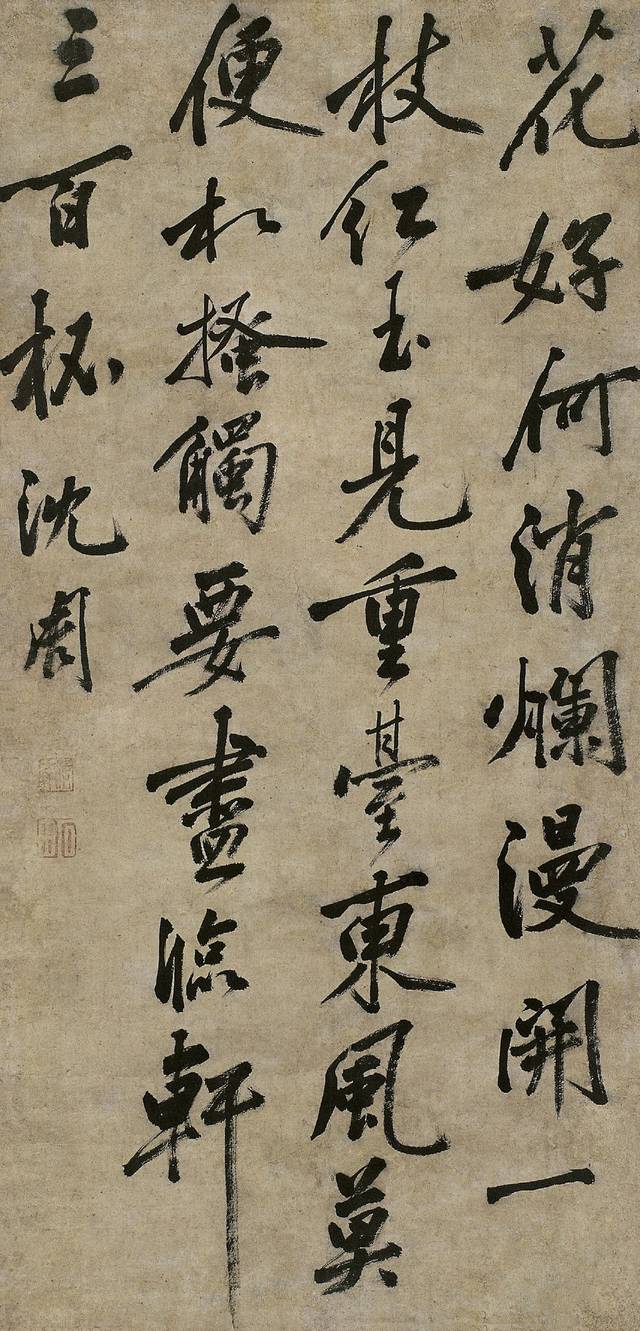 花好何消爛漫開一
枝红玉見重臺東風莫
便相搔觸要盡臨軒
三百杯沈周